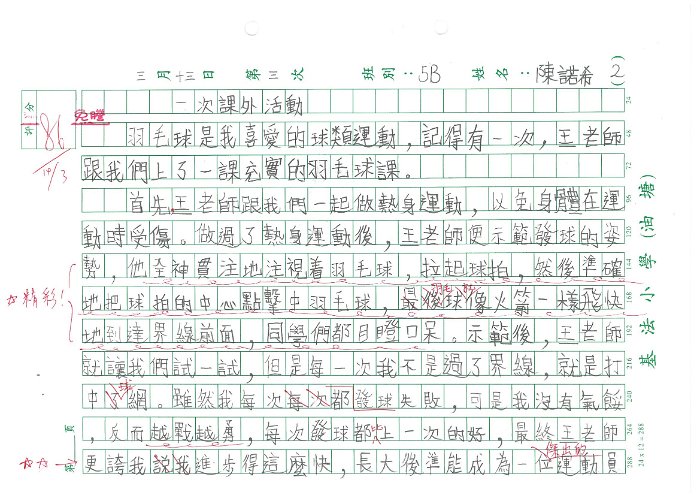 三月十三日 第三次 班別:5B 姓名:陳諾希 (2)
評分
86
14/3
免謄
一次課外活動
羽毛球是我喜愛的球類運動,記得有一次,王老師
跟我們上了一課充實的羽毛球課。
首先,王老師跟我們一起做熱身運動,以免身體在運
動時受傷。做過了熱身運動後,王老師便示範發球的姿
勢,他全神貫注地注視着羽毛球,拉起球拍,然後準確
地把球拍的中心點擊中羽毛球,最後球像火箭一樣飛快
地到達界線前面,同學們都目瞪口呆。示範後,王老師
就讓我們試一試,但是每一次我不是過了界線,就是打
中球網。雖然我每次每次都發球失敗,可是我沒有氣餒
,反而越戰越勇,每次發球都比上一次的好,最終王老師
更誇我說我進步得這麼快,長大後準能成為一位傑出的運動員
精彩!
頁
24
48
72
96
120
144
168
192
216
240
264
288
24 x 12 = 288
基法小學(油塘)